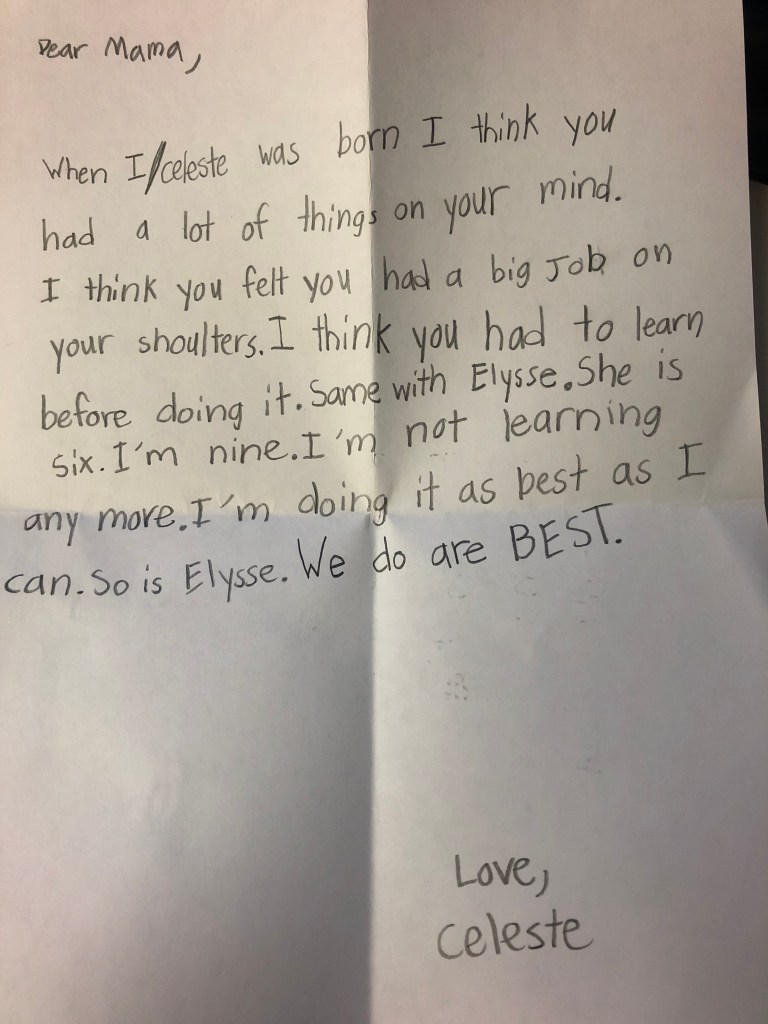 Dear Mama,
When I/celeste was born I think you
had a lot of things on your mind.
I think you felt you had a big Job on
your shoulters. I think you had to learn
before doing it. Same with Elysse. She is
six. I'm nine. I'm not learning
any more. I'm doing it as best as I
can. So is Elysse. We do are BEST.
Love,
Celeste